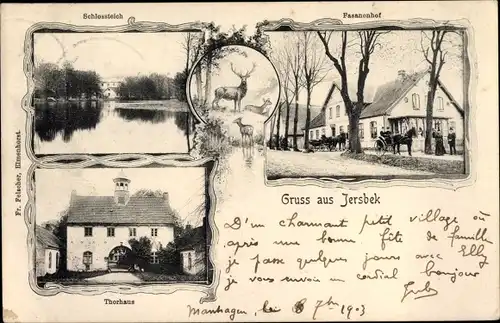 Schlossteich
Fasanenhof
Fr. Felscher, Elmenhorst.
Gruss aus Jersbek
D'un charmant petit village où
après une bonne fête de famille
je passe quelques jours avec Elly
je vous envoie un cordial bonjour
Thorhaus
Manhagen, le 6 7bre 1903